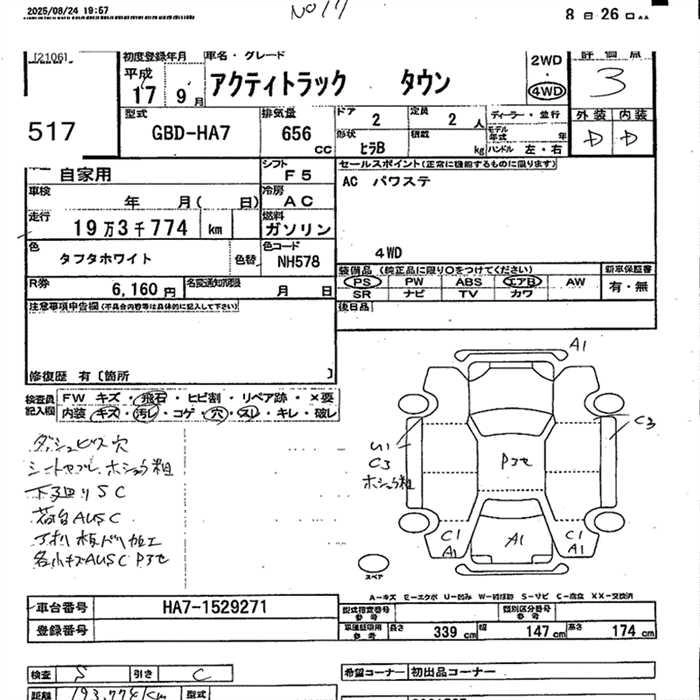 2025/08/24 19:57
No 17
8日26日
[2106]
初度登録年月
車名・グレード
2WD
評価点
平成
アクティトラック タウン
4WD
3
17 9月
517
型式
排気量
ドア
定員
ディーラー・並行
外装 内装
GBD-HA7
656 cc
2
2人
モデル年式 年
D D
形状
積載
ヒラB
kg
ハンドル 左・右
自家用
シフト
F5
セールスポイント(正常に機能するものに限ります)
車検
年 月( 日)
冷房
AC
AC パワステ
走行
19万3千774 km
燃料
ガソリン
色
タフタホワイト
色替
色コード
NH578
4WD
R券
6,160円
名変通知期限
月 日
装備品(純正品に限り○をつけてください)
新車保証書
PS PW ABS エアB AW
有・無
SR ナビ TV カワ
注意事項申告欄(不具合内容等は具体的に記入して下さい)
後日品
修復歴 有〔箇所 〕
検査員記入欄
FW キズ・飛石・ヒビ割・リペア跡・×要
内装 キズ・汚レ・コゲ・穴・スレ・キレ・破レ
ダッシュビス穴
下廻りSC
荷台AUSC
各小キズAUSC Pアセ
A1
C3
U1
C3
Pアセ
C1
A1
A1
C1
A1
スペア
A-キズ E-エクボ U-凹み W-補修跡 S-サビ C-腐食 XX-交換済
車台番号
HA7-1529271
型式指定番号 参考
類別区分番号 参考
登録番号
車種諸元用 参考
長さ 339 cm 幅 147 cm 高さ 174 cm
検査
S
引き
C
希望コーナー 初出品コーナー
距離
193,774Km
型式